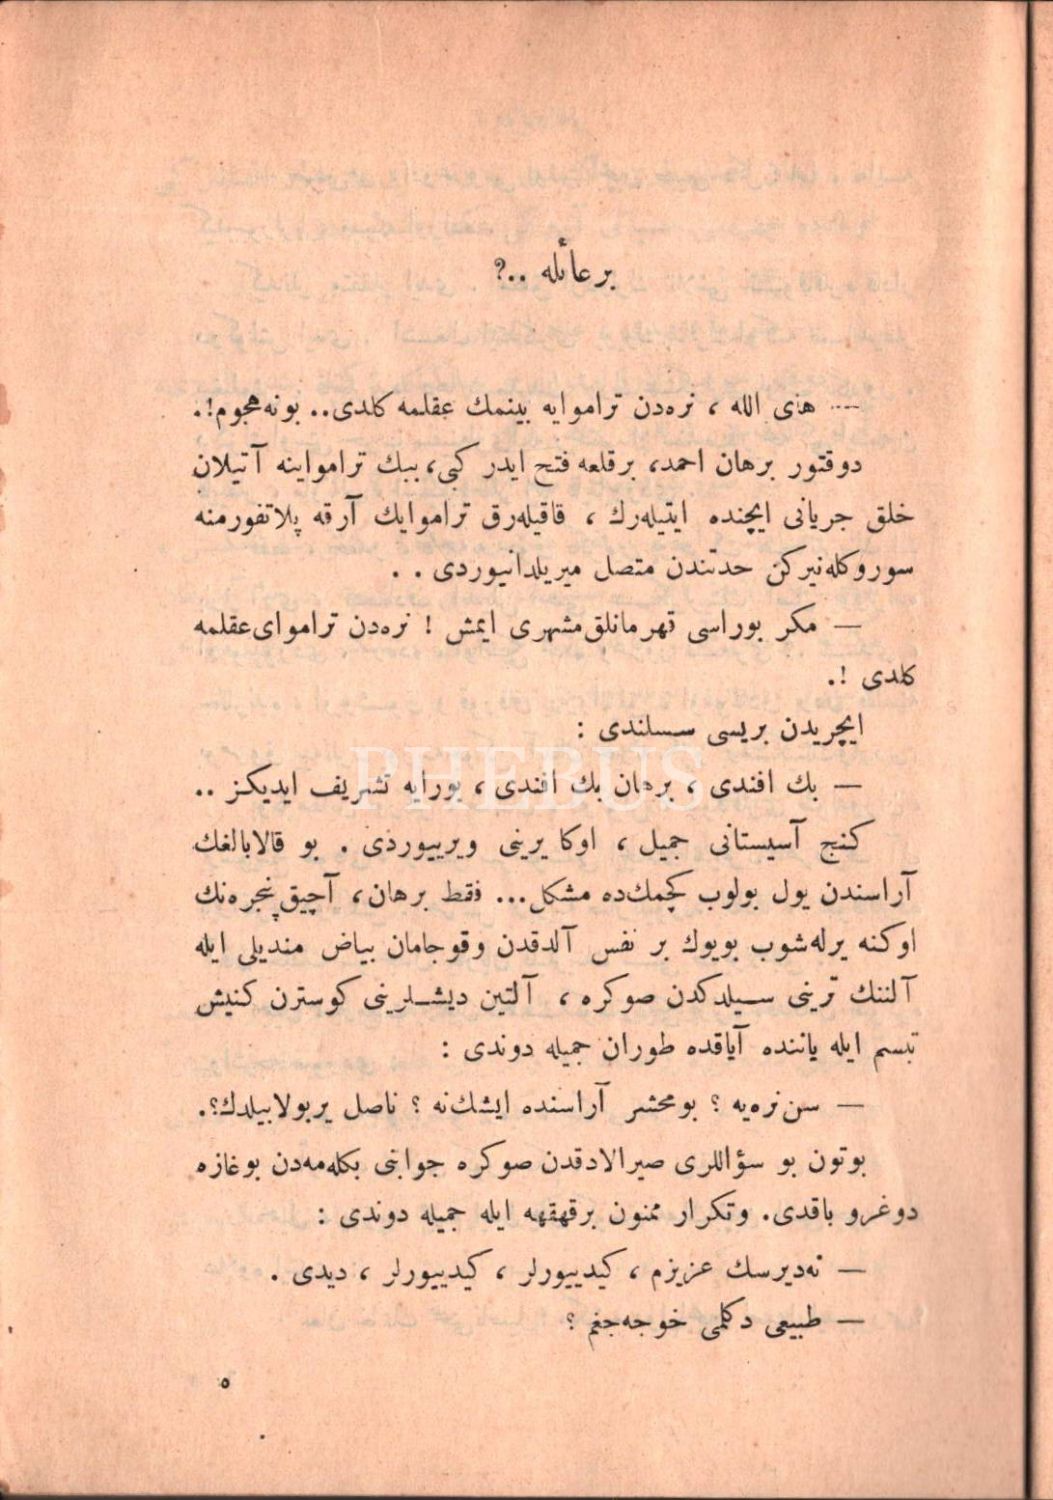 بر عائله ..؟
— های الله ، نره‌دن تراموایه بینمك عقلمه كلدی.. بو نه هجوم!.
دوقتور برهان احمد، بر قلعه فتح ایدر كبی، ببك تراموا‌ینه آتیلان
خلق جریانی ایچنده ایتیله‌رك ، قاقیله‌رق تراموایك آرقه پلاتفورمنه
سوروكله‌نیركن حدتندن متصل میریلدانیوردی . .
— مكر بوراسی قهرمانلق مشهری ایمش ! نره‌دن تراموای عقلمه
كلدی !.
ایچریدن بریسی سسلندی :
— بك افندی ، برهان بك افندی ، بورایه تشریف ایدیكز ..
كنج آسیستانی جمیل ، اوكا یرینی ویرییوردی . بو قالابالغك
آراسندن یول بولوب كچمك‌ده مشكل... فقط برهان، آچیق پنجره‌نك
اوكنه یرله‌شوب بویوك بر نفس آلدقدن وقوجامان بیاض مندیلی ایله
آلننك ترینی سیلدكدن صوكره ، آلتین دیشلرینی كوسترن كنیش
تبسم ایله یاننده آیاقده طوران جمیله دوندی :
— سن نره‌یه ؟ بو محشر آراسنده ایشك نه ؟ ناصل یر بولابیلدك؟.
بوتون بو سؤاللری صیرالادقدن صوكره جوابنی بكله‌مه‌دن بوغازه
دوغرو باقدی. وتكرار ممنون بر قهقهه ایله جمیله دوندی :
— نه‌دیرسك عزیزم ، كیدییورلر ، كیدییورلر ، دیدی .
— طبیعی دكلمی خوجه‌جغم ؟
٥
PHEBUS